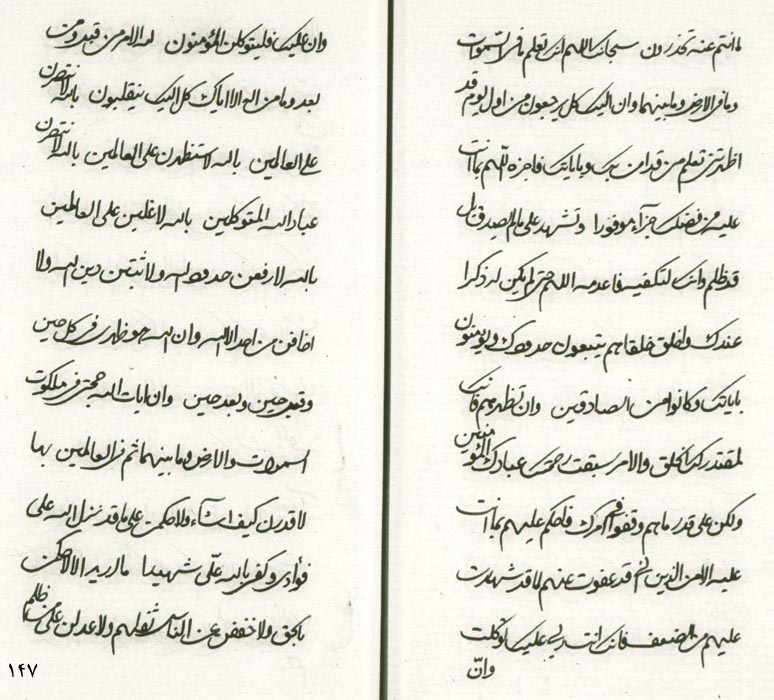 ما انتم عنه تحذرون سبحانك اللهم انك تعلم ما فى السموات
وما فى الارض وما بينهما وان اليك كل يرجعون من اول يوم قد
اظهرتنى تعلم من قد امن بك وباياتك فاجزه اللهم بما انت
عليه من فضلك جزآء موفورا وتشهد على ما لم يصدق بل
قد ظلم وانك لتكفيه فاعدمه اللهم حتى لم يكن له ذكرا
عندك واخلق خلقا هم يتبعون حدودك ويؤمنون
باياتك وكانوا من الصادقين وان تظهرهم فانك
لمقتدر لك الخلق والامر سبقت رحمتك عبادك المؤمنين
ولكن على قدر ما هم وقفوا فى امرك فاحكم عليهم بما انت
عليه الا من الذين قد عفوت عنهم لما قد شهدت
عليهم من الضعف فانك انت ربى عليك توكلت
وان
وان عليك فليتوكلن المؤمنون لله الامر من قبل ومن
بعد وما من اله الا اياك كل اليك ينقلبون بالله لانتصرن
على العالمين بالله لاستظهرن على العالمين بالله لانتصرن
عباد الله المتوكلين بالله لاغلبن على العالمين
بالله لارفعن حدود الله ولاثبتن دين الله ولا
اخافن من احد الا الله وان الله هو ظهرى فى كل حين
وقبل حين وبعد حين وان ايات الله حجتى فى ملكوت
السموات والارض وما بينهما ثم فى العالمين بها
لاقدرن كيف اشآء ولاحكمن على ما قد نزل الله على
فؤادى وكفى بالله علّى شهيدا ما اريد الا لاحكمن
بالحق ولاخفض عن الناس ثقلهم ولاعدلن على
١٤٧